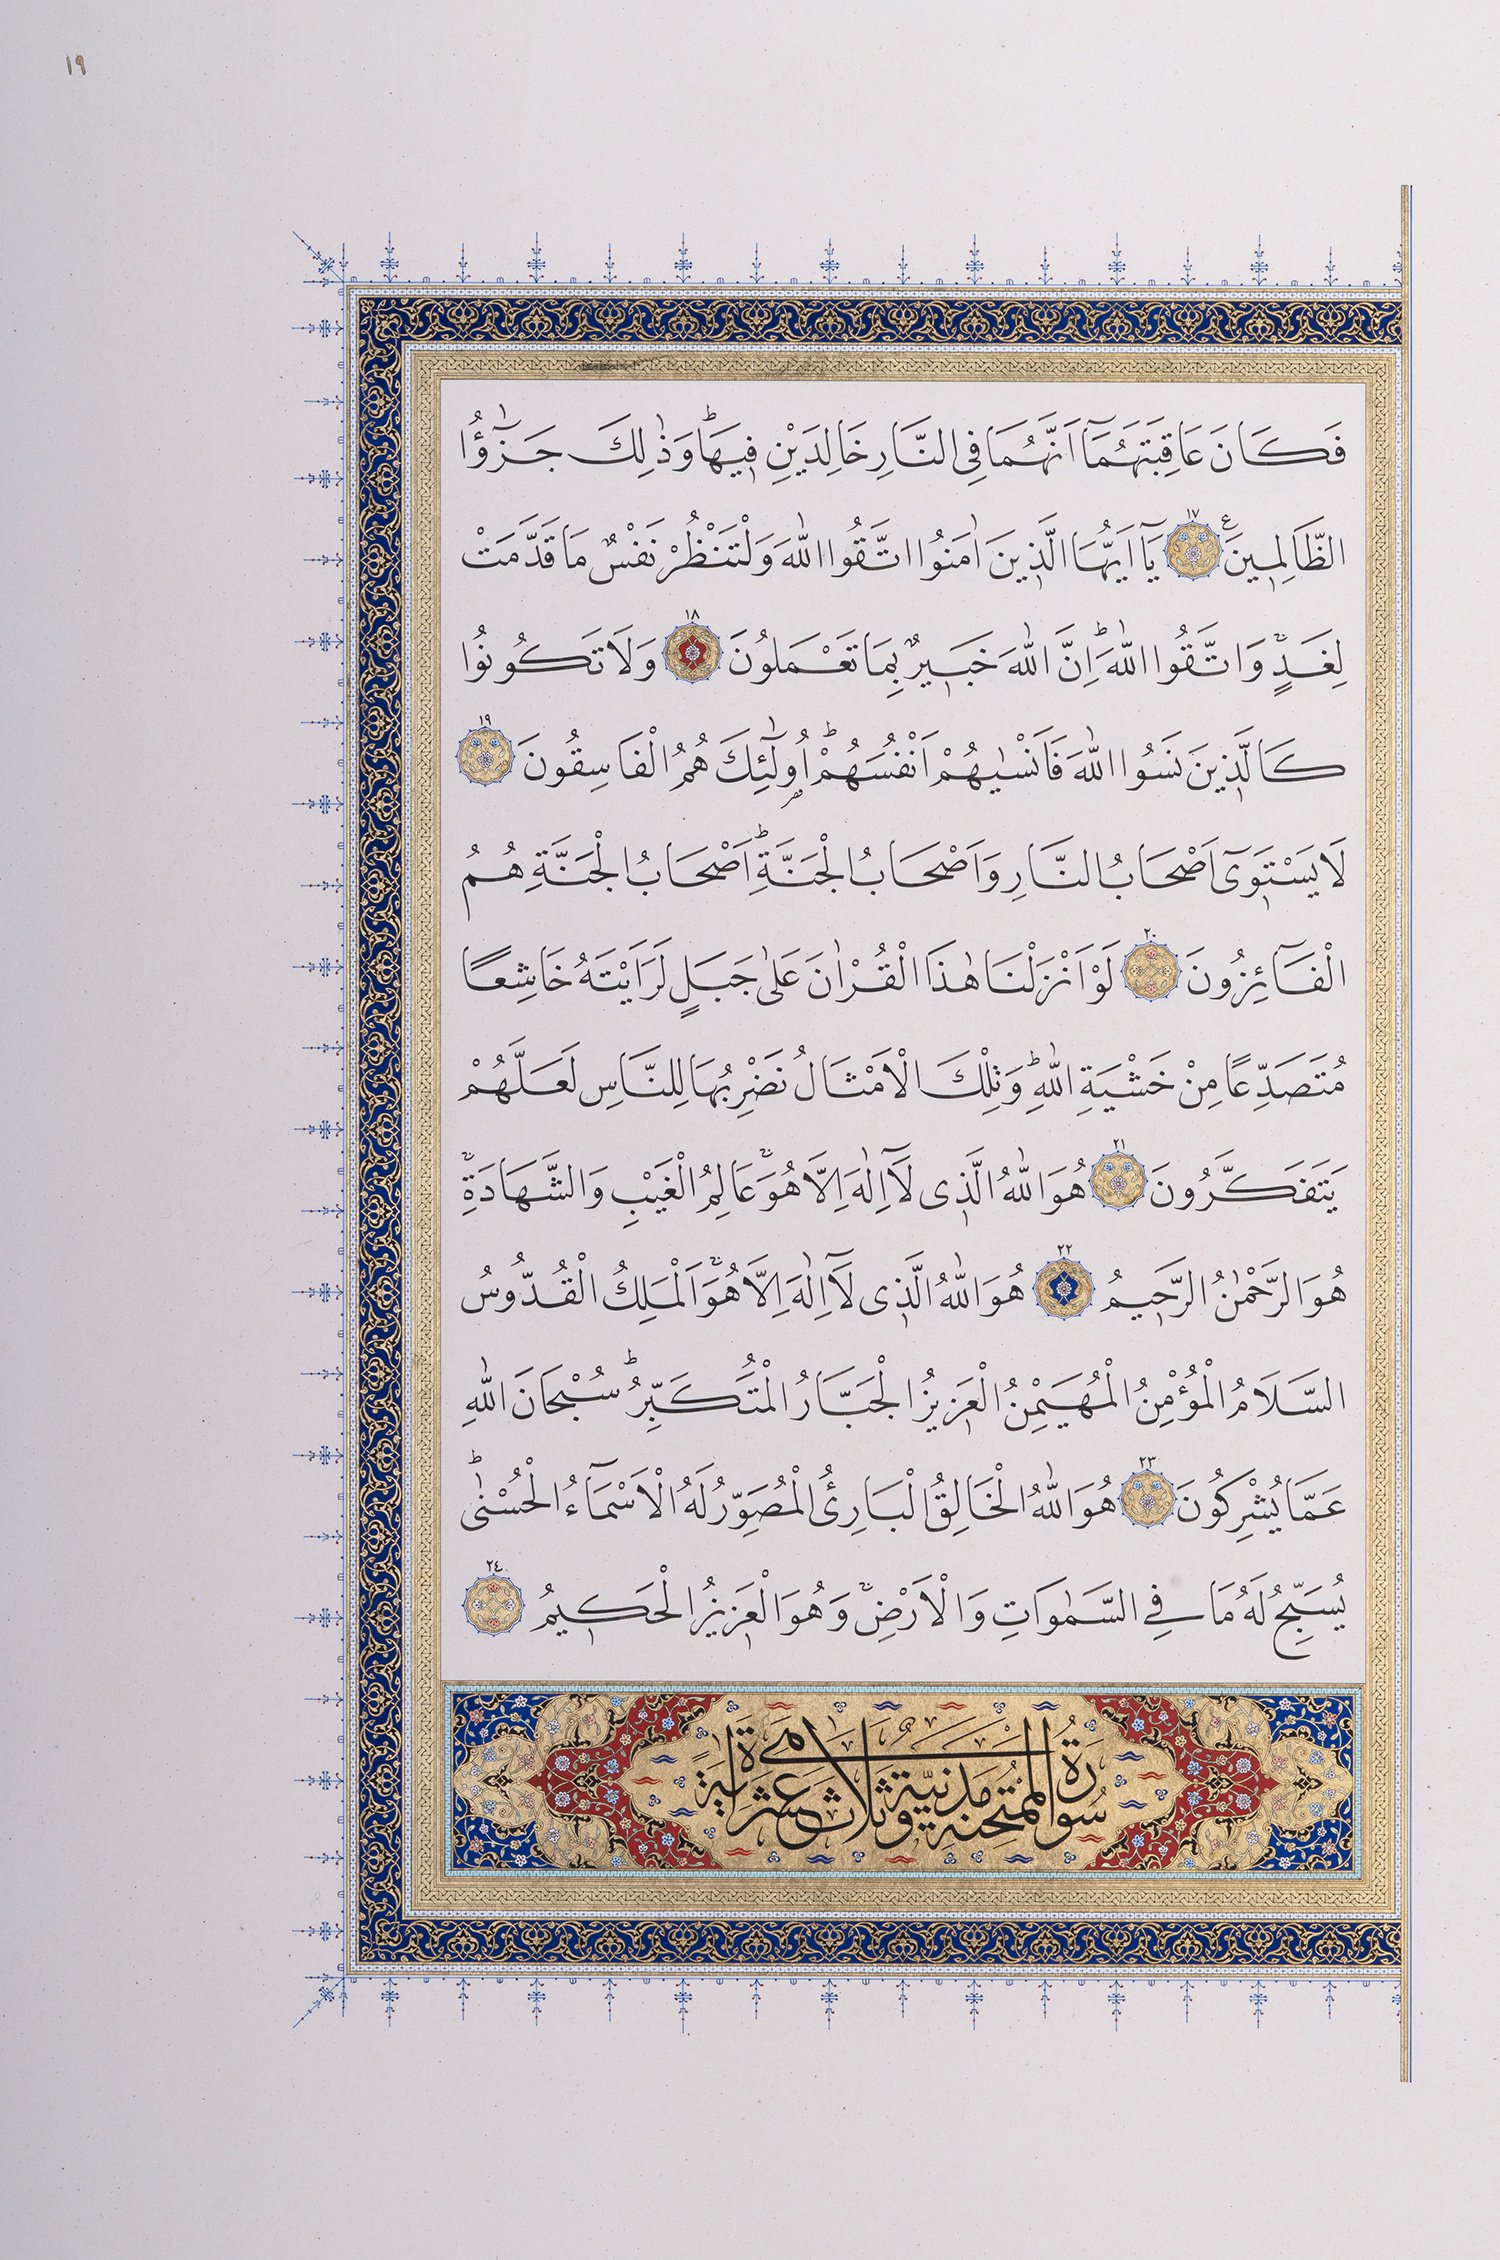 ١٩
فَكَانَ عَاقِبَتَهُمَٓا اَنَّهُمَا فِى النَّارِ خَالِدَيْنِ فٖيهَاؕ وَذٰلِكَ جَزٰٓؤُا
الظَّالِمٖينَ ع ١٧ يَٓا اَيُّهَا الَّذٖينَ اٰمَنُوا اتَّقُوا اللّٰهَ وَلْتَنْظُرْ نَفْسٌ مَا قَدَّمَتْ
لِغَدٍۚ وَاتَّقُوا اللّٰهَؕ اِنَّ اللّٰهَ خَبٖيرٌ بِمَا تَعْمَلُونَ ١٨ وَلَا تَكُونُوا
كَالَّذٖينَ نَسُوا اللّٰهَ فَاَنْسٰيهُمْ اَنْفُسَهُمْؕ اُو۬لٰٓئِكَ هُمُ الْفَاسِقُونَ ١٩
لَا يَسْتَوٖٓى اَصْحَابُ النَّارِ وَاَصْحَابُ الْجَنَّةِؕ اَصْحَابُ الْجَنَّةِ هُمُ
الْفَٓائِزُونَ ٢٠ لَوْ اَنْزَلْنَا هٰذَا الْقُرْاٰنَ عَلٰى جَبَلٍ لَرَاَيْتَهُ خَاشِعًا
مُتَصَدِّعًا مِنْ خَشْيَةِ اللّٰهِؕ وَتِلْكَ الْاَمْثَالُ نَضْرِبُهَا لِلنَّاسِ لَعَلَّهُمْ
يَتَفَكَّرُونَ ٢١ هُوَ اللّٰهُ الَّذٖى لَٓا اِلٰهَ اِلَّا هُوَۚ عَالِمُ الْغَيْبِ وَالشَّهَادَةِۚ
هُوَ الرَّحْمٰنُ الرَّحٖيمُ ٢٢ هُوَ اللّٰهُ الَّذٖى لَٓا اِلٰهَ اِلَّا هُوَۚ اَلْمَلِكُ الْقُدُّوسُ
السَّلَامُ الْمُؤْمِنُ الْمُهَيْمِنُ الْعَزٖيزُ الْجَبَّارُ الْمُتَكَبِّرُؕ سُبْحَانَ اللّٰهِ
عَمَّا يُشْرِكُونَ ٢٣ هُوَ اللّٰهُ الْخَالِقُ الْبَارِئُ الْمُصَوِّرُ لَهُ الْاَسْمَٓاءُ الْحُسْنٰىؕ
يُسَبِّحُ لَهُ مَا فِے السَّمٰوَاتِ وَالْاَرْضِۚ وَهُوَ الْعَزٖيزُ الْحَكٖيمُ ٢٤
سُورَةُ الْمُمْتَحِنَةِ مَدَنِيَّةٌ وَثَلَاثَ عَشْرَةَ اٰيَةً